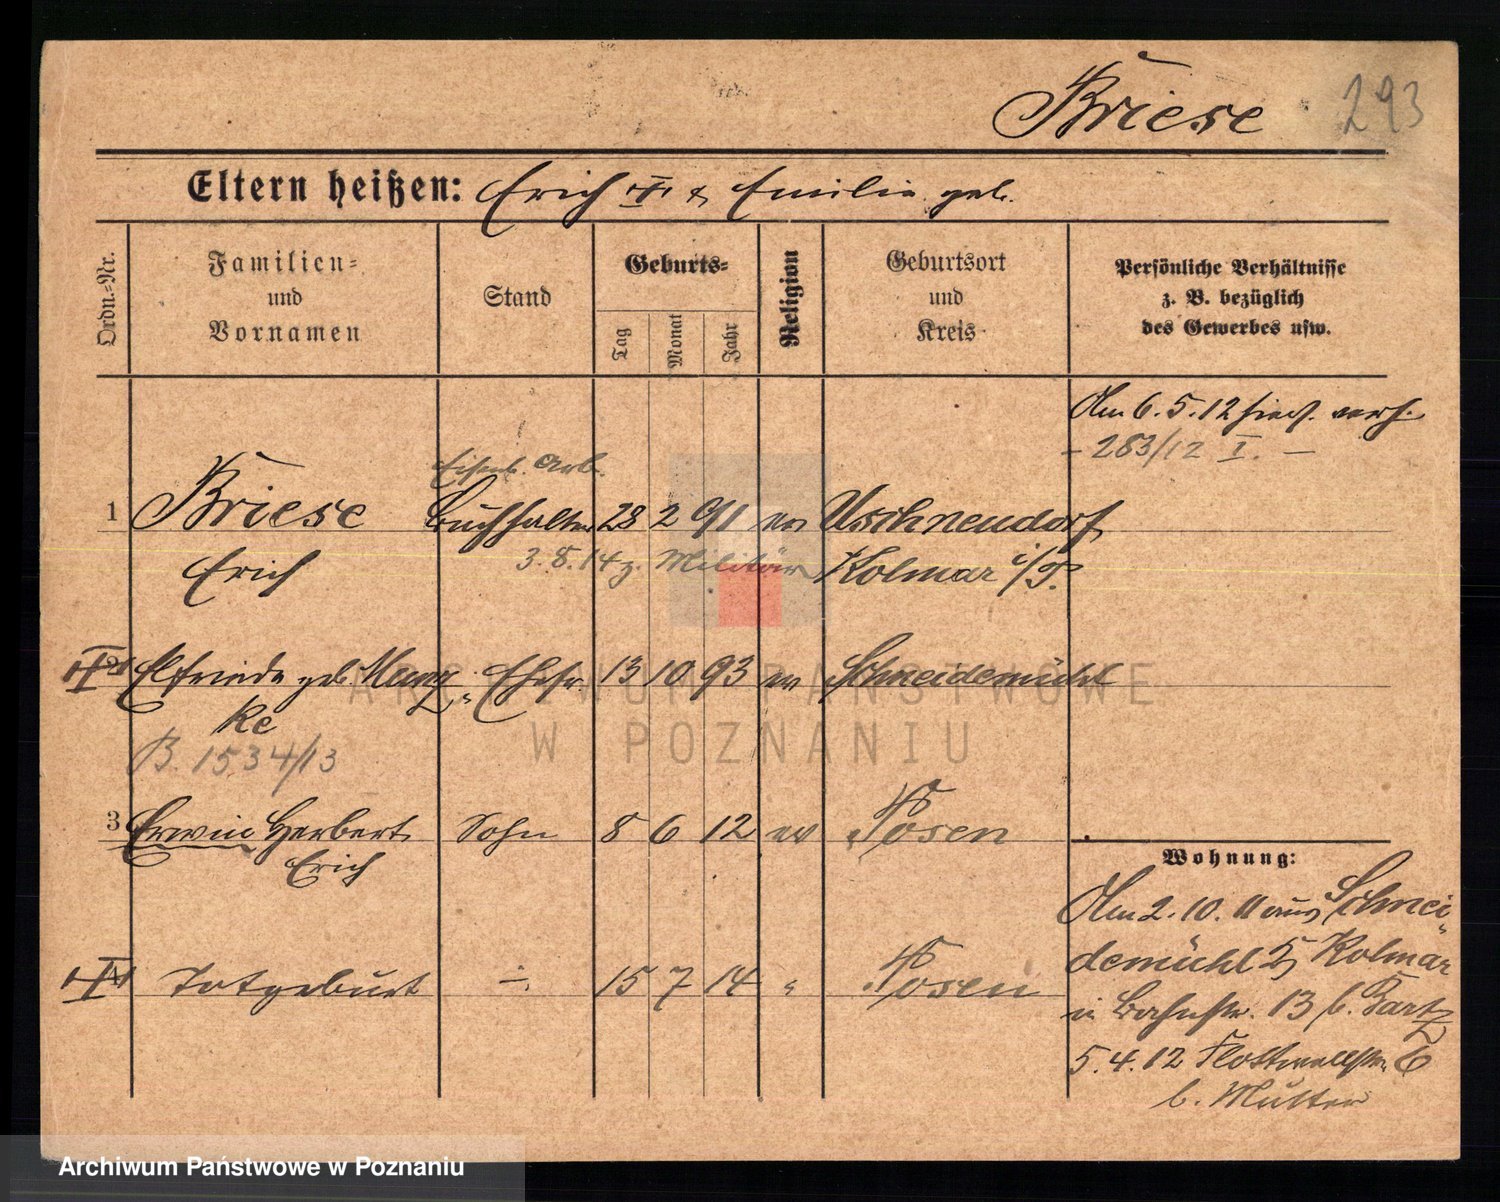 Briese 293
Eltern heißen: Erich & Emilie geb.
Ordn.-Nr.
Familien-
und
Vornamen
Stand
Geburts-
Tag
Monat
Jahr
Religion
Geburtsort
und
Kreis
Persönliche Verhältnisse
z. B. bezüglich
des Gewerbes usw.
Am 6.5.12 verh.
- 283/12 I. -
Eisenb. Arb.
1 Briese Buchhalter 28 2 91 ev Uschneudorf
3.8.14 z. Militär
Erich Kolmar i/P.
2 Elfriede geb. Manz- Ehefr. 13 10 93 ev Schneidemühl
ke
B. 1534/13
3 Erwin Herbert Sohn 8 6 12 ev Posen
Erich
4 Totgeburt ÷ 15 7 14 " Posen
Wohnung:
Am 2.10.11 aus Schnei
demühl Kolmar
in Bahnstr. 13 b. Bartz
5.4.12 Flottwellstr. 6
b. Mutter
ARCHIWUM PAŃSTWOWE
W POZNANIU
Archiwum Państwowe w Poznaniu